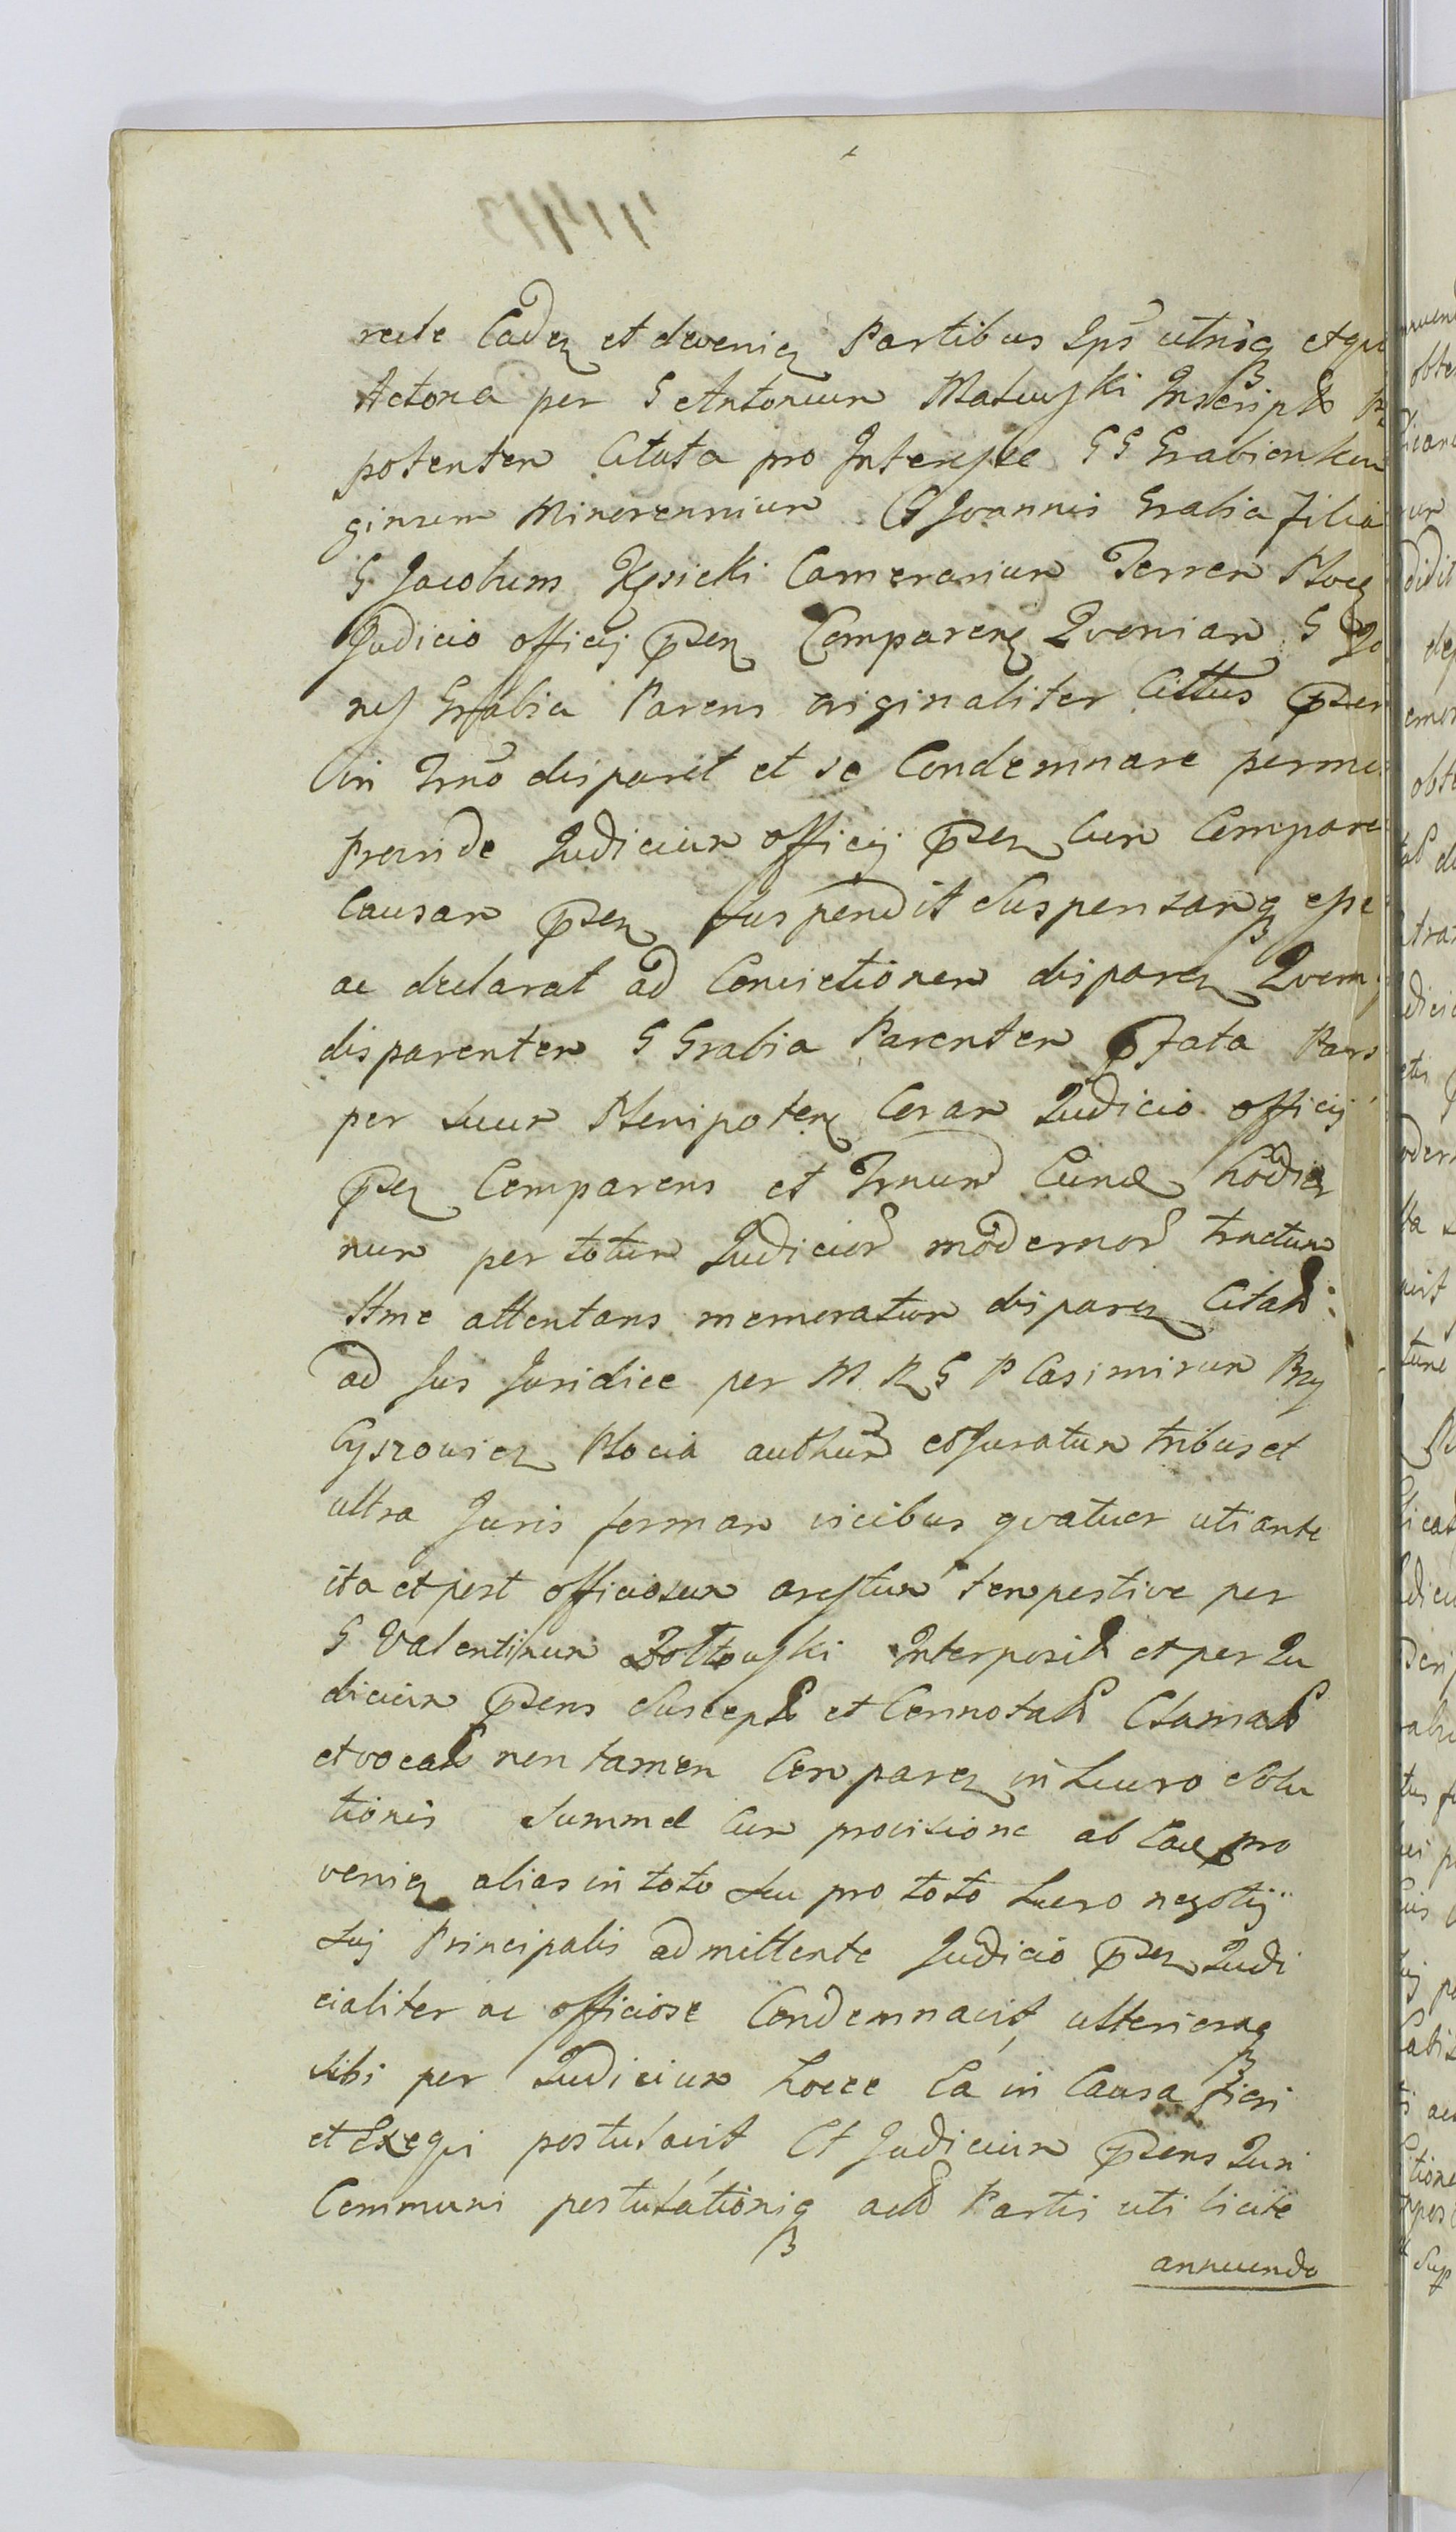 recte Cadeń et devenień Partibus Ips utrisq et qui
Actorea per G Antonium Matuski Inscript
potentem Citata pro Interesse GG Grabianken
ginrum Minorennium G Joannis Grabia filia
G Jacobum Kęsicki Camerarium Terren Ploceń
Judicio officij Psen Comparen Quoniam G Jo
nes Grabia Parens originaliter Cittus Psen
in Trno disparet et se Condemnare permi
proinde Judicium officij Psen Cum Compare
Causam Psen suspendit suspensamq esse
ac declarat ad Convictionem disparen Quem
disparentem G Grabia Parentem Pfata Pars
per suum Plenipoten Coram Judicio officij
Psen Comparens et Trnum Cunc hodier
num per totum Judicior modernor tractum
ttme attentans memoratum disparen Citat:
ad Jus Juridice per M R G P Casimirum Prz
Cyszowicz Plocia authum et Juratum tribus et
ultra Juris formam vicibus quatuor uti ante
ita et post officiosum arestum tempestive per
G Valentinum Zołtowski Interposit et per Ju
dicium Psens suscept et Connotat Clamat
et vocat non tamen Comparen in Lucro Solu
tionis summae Cum provisione ab Eae pro
venien alias in toto seu pro toto Lucro negotij
sui Principalis admittente Judicio Psen Judi
cialiter ac officiose Condemnavit, ulterioraq
sibi per Judicium hocce Ea in Causa fieri
et Exequi postulavit Et Judicium Psens Juri
Communi postulationiq act Partis uti licite
annuendo